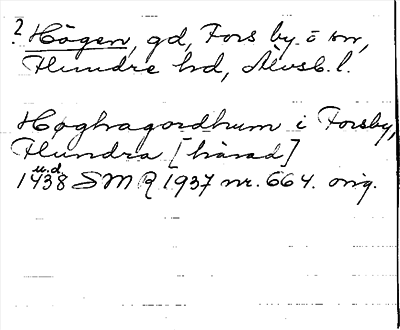 ? Högen, gd, Fors by. o sn,
Flundre hd, Älvsb. l.
Høghagordhum i Forsby,
Flundra [härad]
u.d.
1438 SMR 1937 nr. 664. orig.